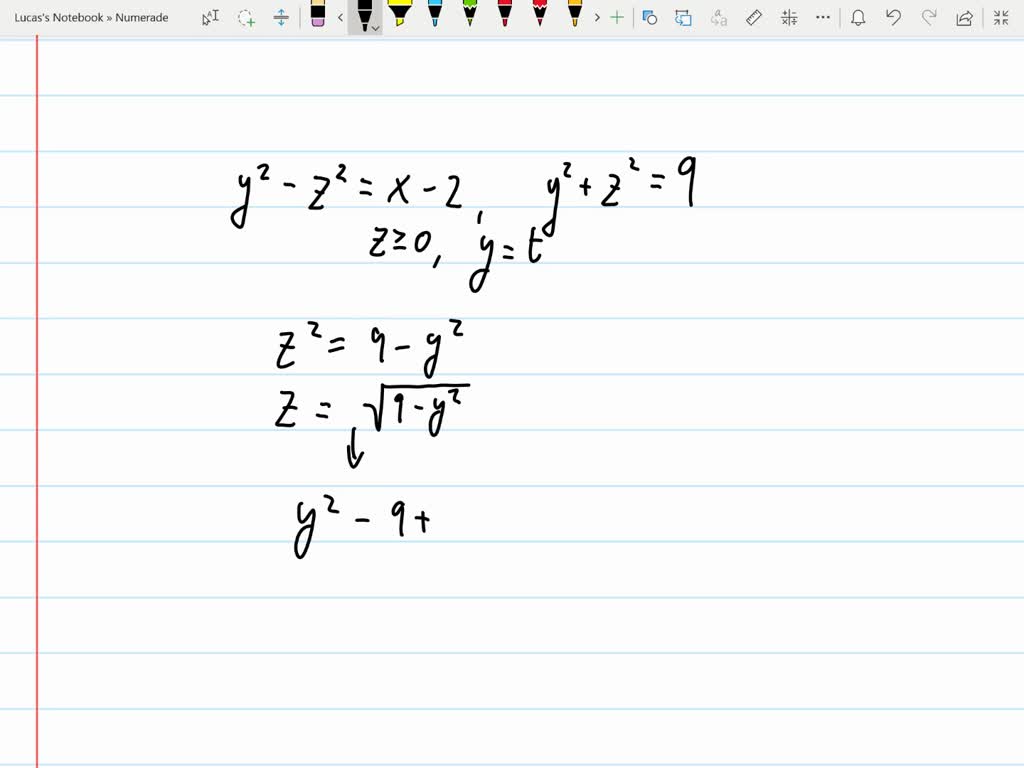 Lucas's Notebook » Numerade
y² - z² = x - 2, y² + z² = 9
z ≥ 0, y = t
z² = 9 - y²
z = √(9 - y²)
↓
y² - 9 +